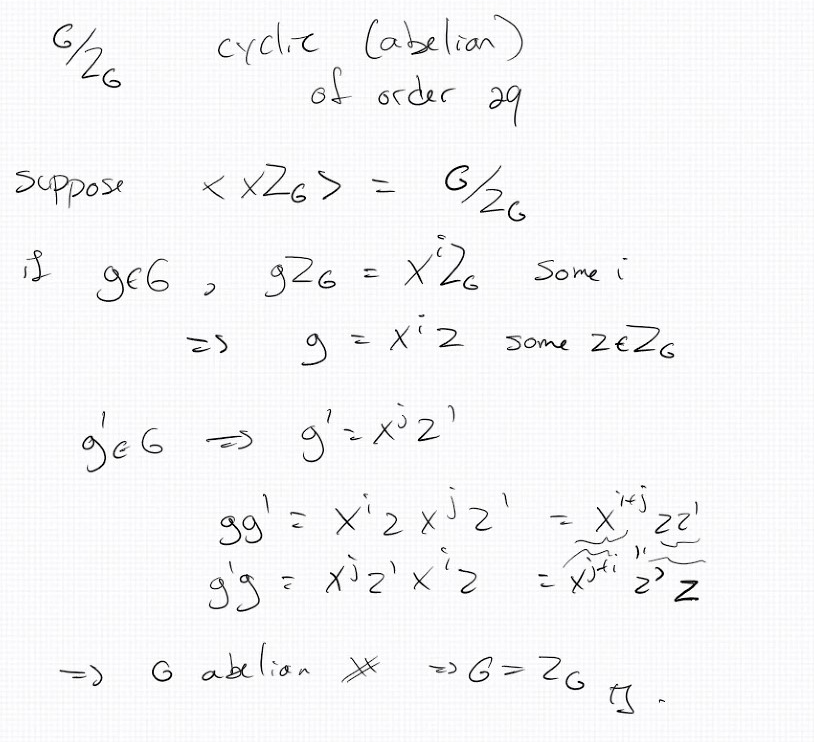 G/Z_G cyclic (abelian)
of order 29
suppose <xZ_G> = G/Z_G
if g∈G, gZ_G = x^i Z_G some i
=> g = x^i z some z∈Z_G
g'∈G => g' = x^j z'
gg' = x^i z x^j z' = x^{i+j} zz'
g'g = x^j z' x^i z = x^{j+i} z' z
=> G abelian ※ => G = Z_G